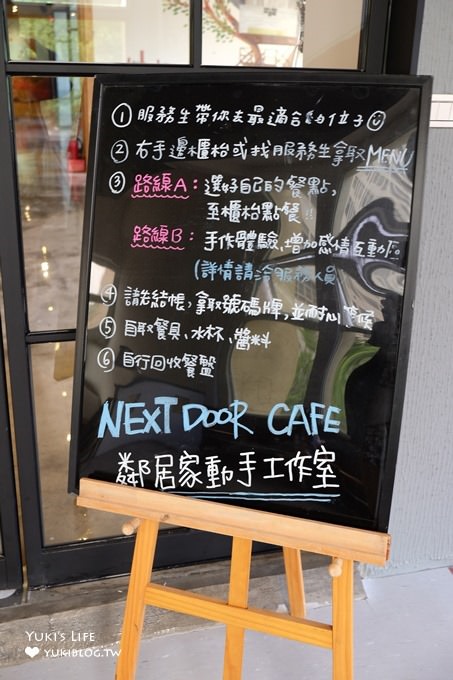 ① 服務生帶你去最適合的位子☺
② 右手邊櫃枱或找服務生拿取MENU
③ 路線A：選好自己的餐點,
至櫃枱點餐!!
路線B：手作體驗,增加感情互動!。
(詳情請洽服務人員
④ 請先結帳,拿取號碼牌,並耐心等候
⑤ 自取餐具、水杯、醬料
⑥ 自行回收餐盤
NEXT DOOR CAFE
鄰居家動手工作室
YUKI'S LIFE
YUKIBLOG.TW